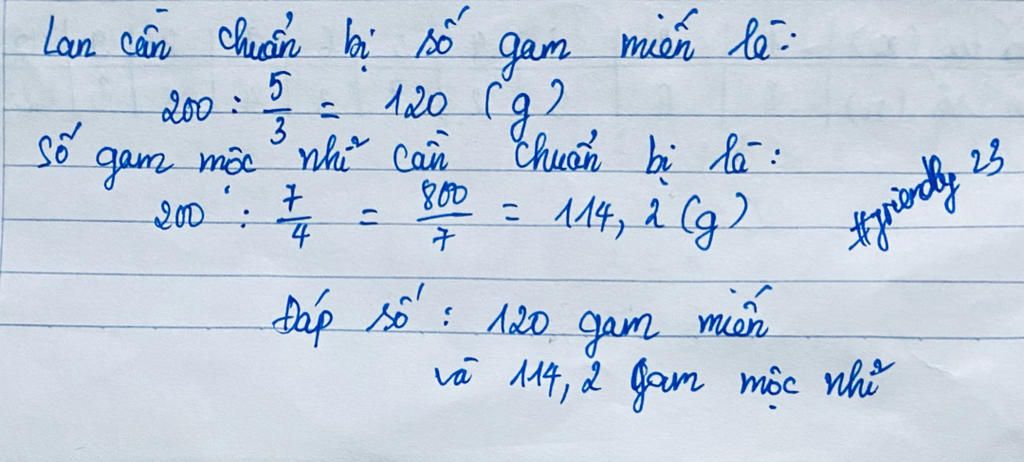 Lan cần chuẩn bị số gam miến là:
200 : 5/3 = 120 (g)
Số gam mộc nhĩ cần chuẩn bị là:
200 : 7/4 = 800/7 = 114, 2 (g)
#friendly 23
Đáp số : 120 gam miến
và 114, 2 gam mộc nhĩ